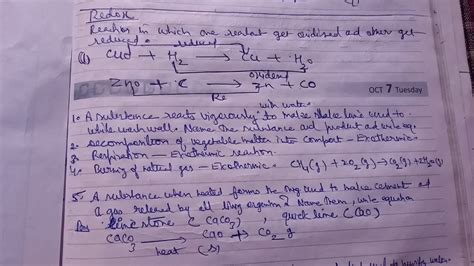 Redox
Reaction in which one reactant get oxidised and other get
reduced.
reduced
(1) CuO + H2 → Cu + H2O
oxidised
ZnO + C → Zn + CO
Re
OCT 7 Tuesday
with water
1. A substance reacts vigorously to make used to
white wash wall. Name the substance and product and write eq.
2. decomposition of vegetable matter into compost - Exothermic
3. Respiration - Exothermic reaction.
4. Burning of natural gas - Exothermic. CH4(g) + 2O2(g) → CO2(g) + 2H2O(g)
5. A substance when heated forms the used to make cement and
a gas released by all living organism. Name them, write equation
Ans lime stone (CaCO3), quick lime (CaO)
CaCO3 → CaO + CO2 g
heat (s)
used to